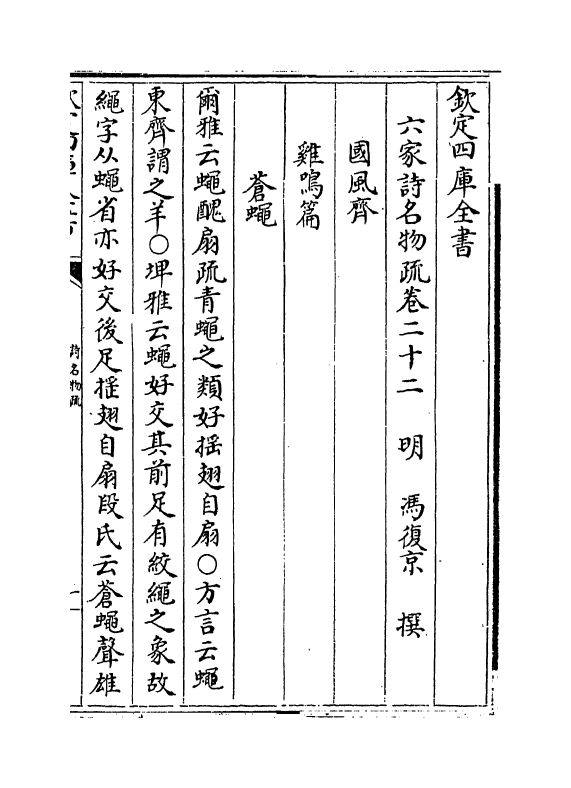 欽定四庫全書
六家詩名物疏卷二十二 明 馮復京 撰
國風齊
雞鳴篇
蒼蠅
爾雅云蠅醜扇疏青蠅之類好揺翅自扇○方言云蠅
東齊謂之羊○埤雅云蠅好交其前足有絞繩之象故
繩字从蠅省亦好交後足揺翅自扇段氏云蒼蠅聲雄
詩名物疏
一